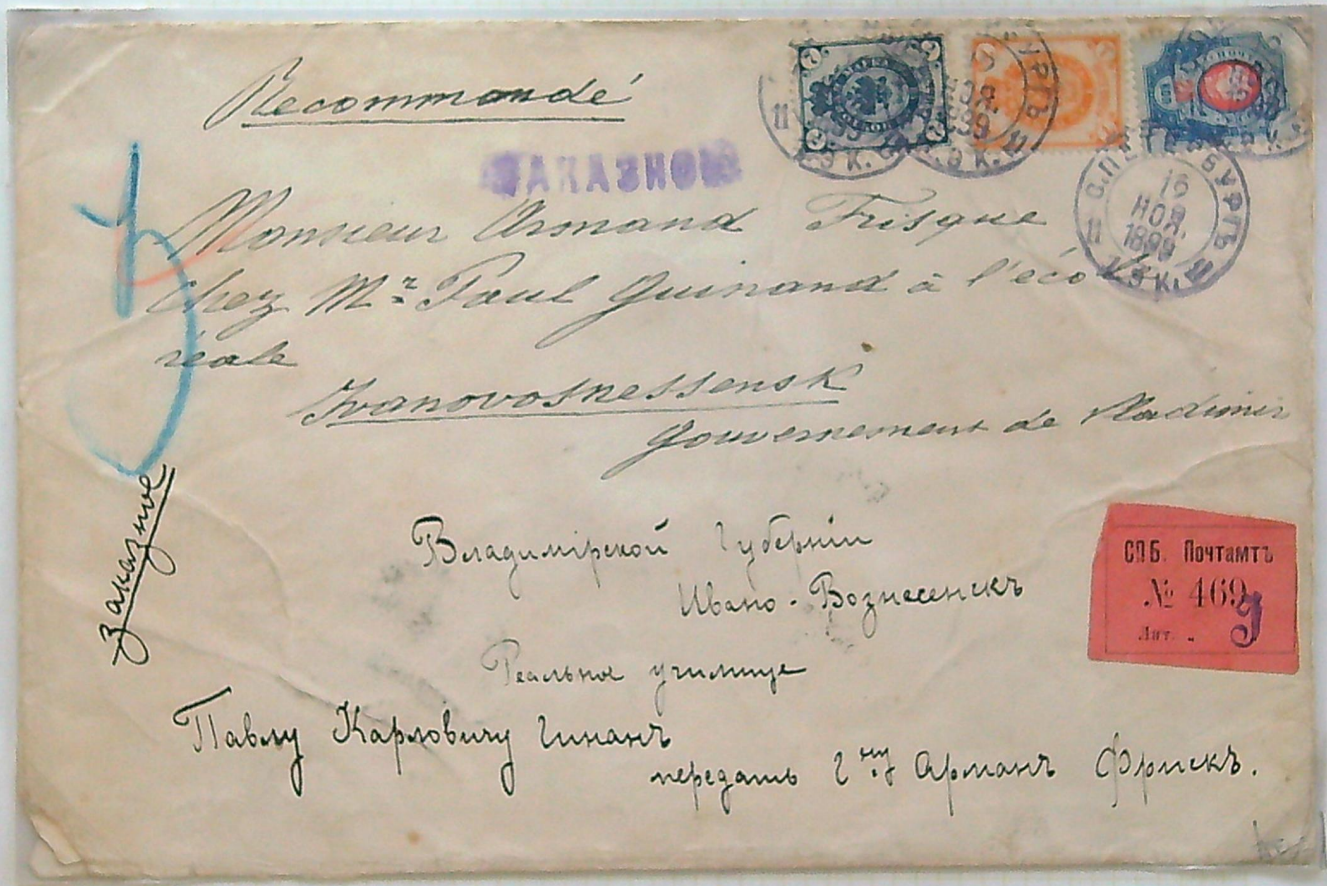 Recommandé
ЗАКАЗНОЕ
С.ПЕТЕРБУРГЪ
16
НОЯ.
1899
11
Monsieur Armand Frisque
chez Mr Paul Guinand à l'éco
réale
Ivanovosnessensk
Gouvernement de Vladimir
заказное
Владимірской Губерніи
Ивано-Вознесенскъ
СПБ. Почтамтъ
№ 469
Лит.
Реальное училище
Павлу Карловичу Гинанъ
передать Гну Арманъ Фрискъ.